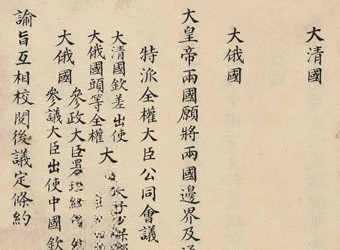 大清國
大俄國
大皇帝兩國願將兩國邊界及通
特派全權大臣公同會議
大清國欽差出使
大俄國頭等全權
大
大俄國
參政大臣署理總
參議大臣出使中國欽
諭旨互相校閱後議定條約